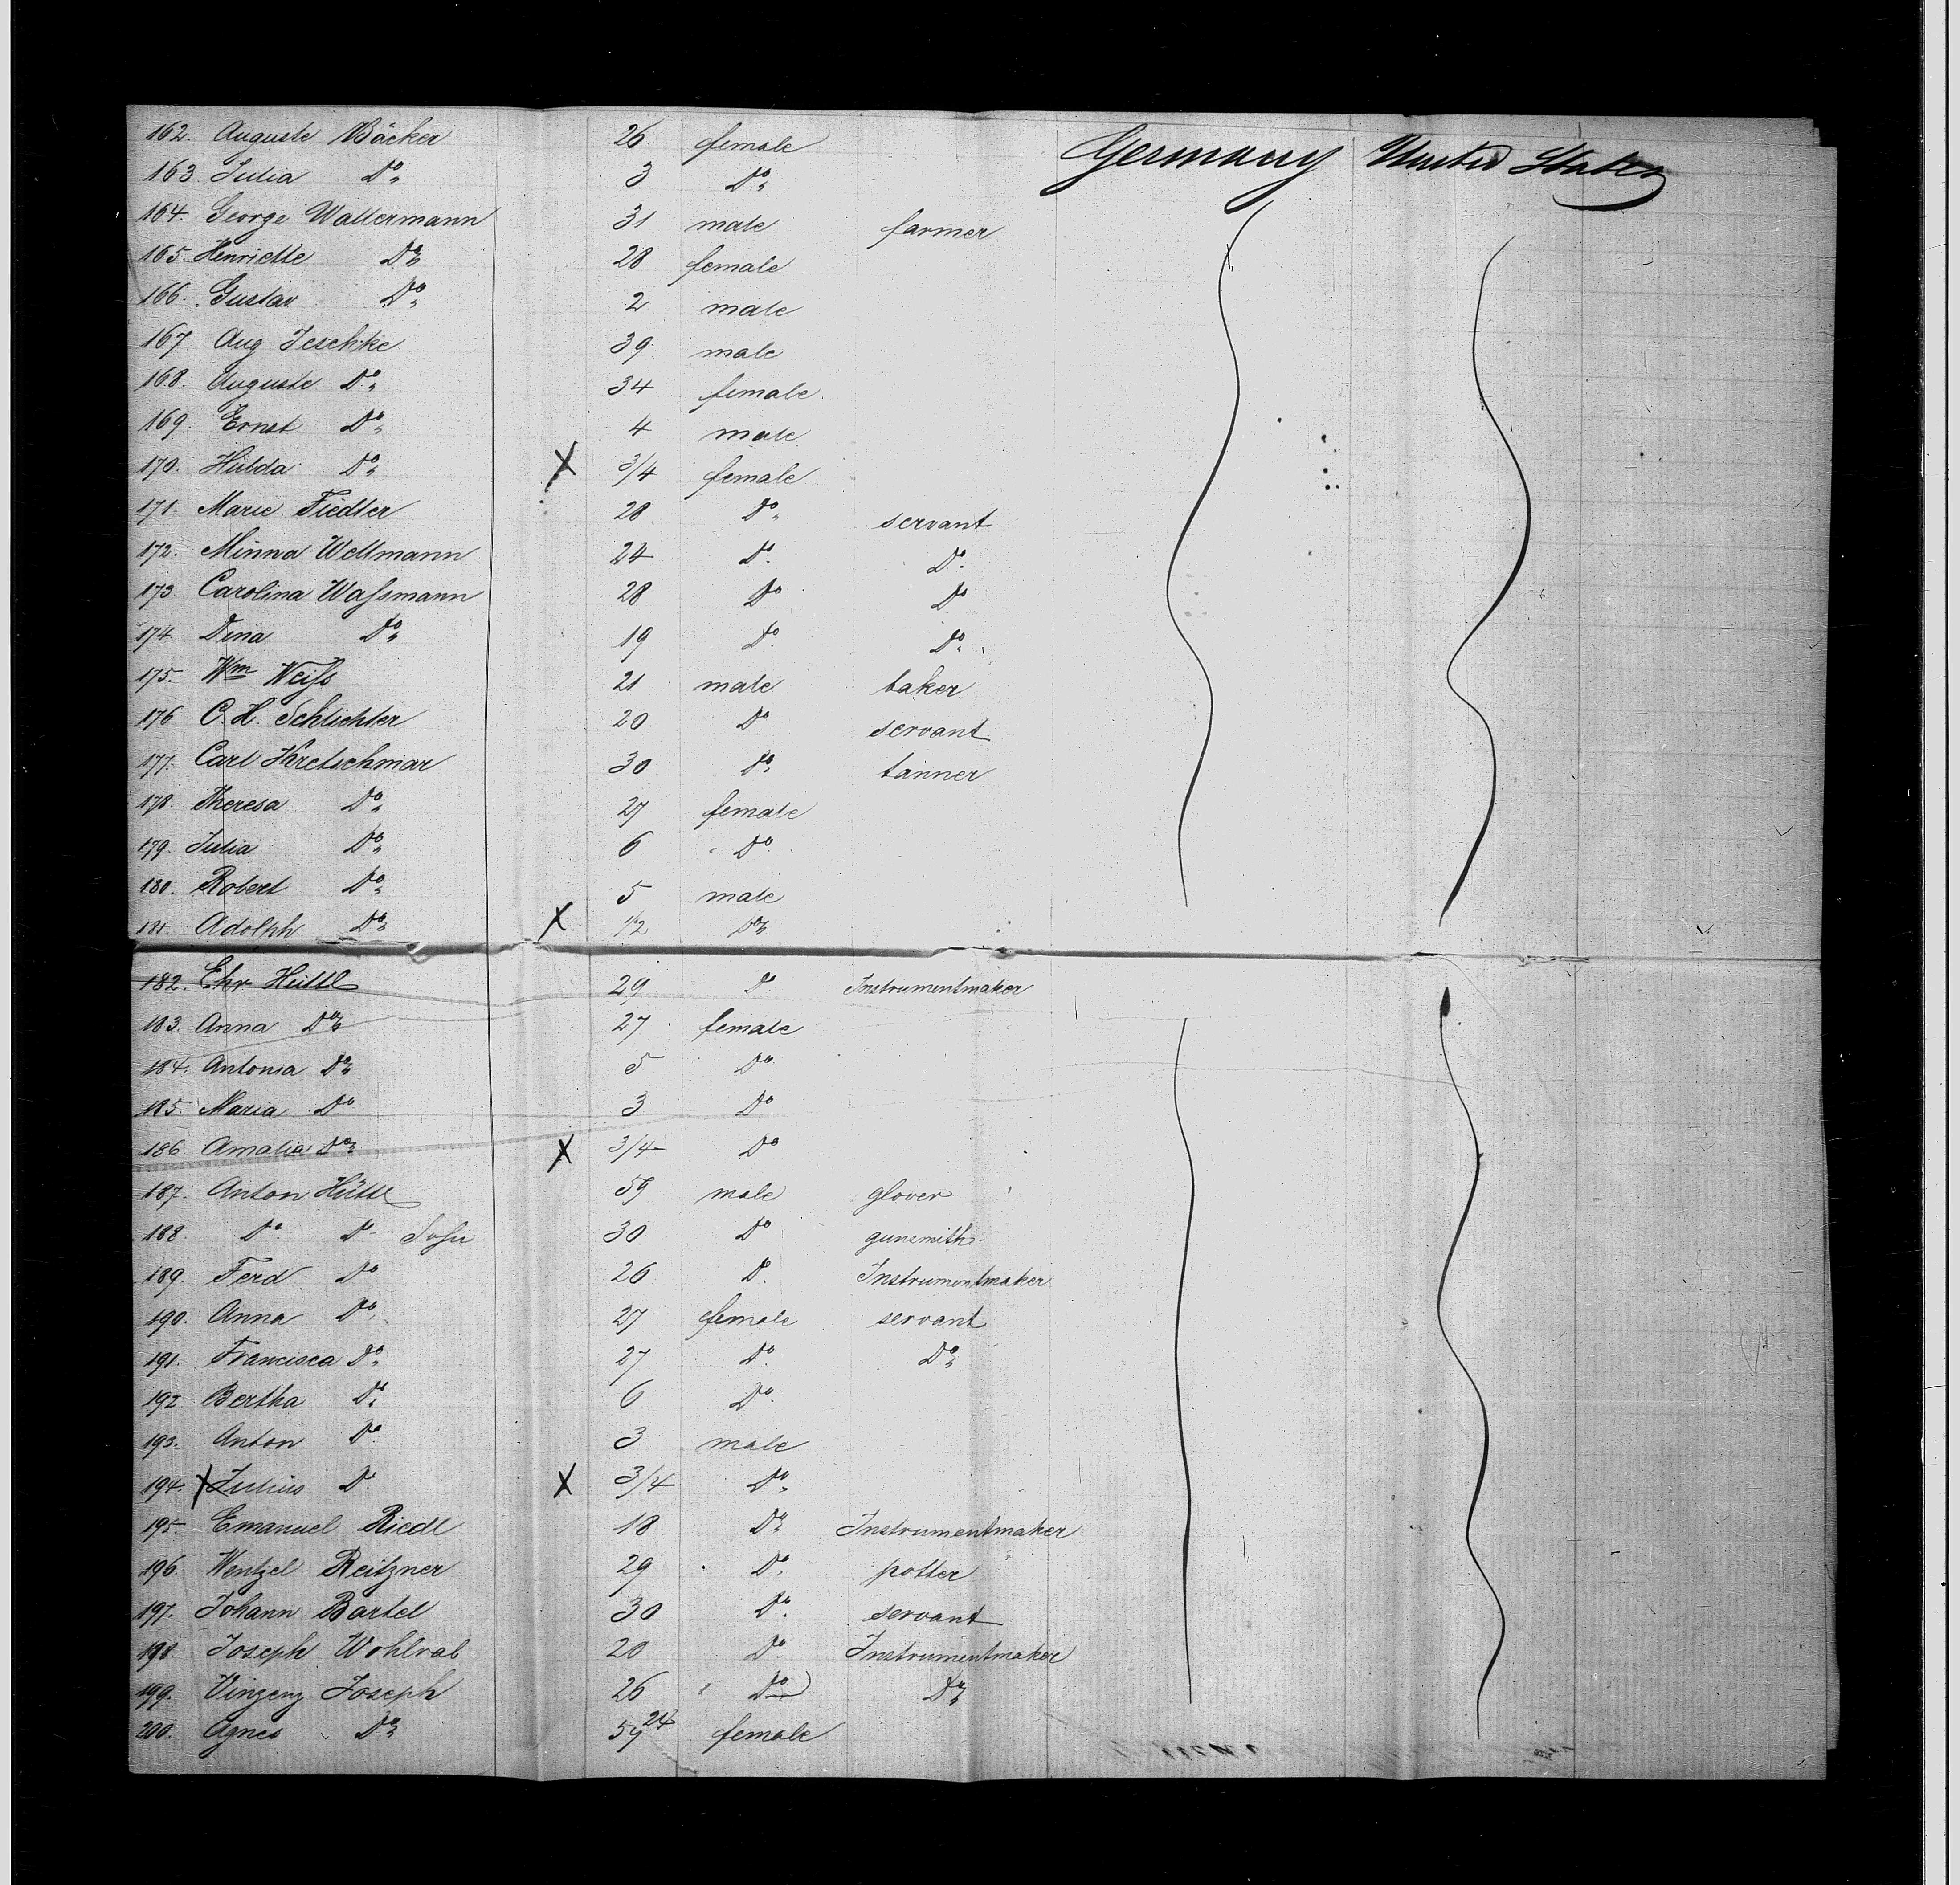 162. Auguste Bäcker 26 female Germany United States
163. Julia Do 3 Do
164. George Waltermann 31 male farmer
165. Henriette Do 28 female
166. Gustav Do 2 male
167 Aug Jeschke 39 male
168. Auguste Do 34 female
169. Ernst Do 4 male
170. Hulda Do X 3/4 female
171. Marie Fiedler 28 Do servant
172. Minna Wellmann 24 Do Do
173 Carolina Waſsmann 28 Do Do
174. Dina Do 19 Do Do
175. Wm Weiſs 21 male baker
176 C. H. Schlichter 20 Do servant
177. Carl Kretschmar 30 Do tanner
178. Theresa Do 27 female
179. Julia Do 6 Do
180. Robert Do 5 male
181. Adolph Do X 1/2 Do
182. Chr Hüttl 29 Do Instrumentmaker
183. Anna Do 27 female
184. Antonia Do 5 Do
185. Maria Do 3 Do
186 Amalia Do X 3/4 Do
187. Anton Hüttl 59 male glover
188. Do Do Sohn 30 Do gunsmith
189. Ferd Do 26 Do Instrumentmaker
190. Anna Do 27 female servant
191. Francisca Do 27 Do Do
192 Bertha Do 6 Do
193. Anton Do 3 male
194. X Julius Do X 3/4 Do
195. Emanuel Riedl 18 Do Instrumentmaker
196. Wentzel Reitzner 29 Do potter
197. Johann Bartel 30 Do servant
198. Joseph Wohlrab 20 Do Instrumentmaker
199. Vinzenz Joseph 26 Do Do
200. Agnes Do 24 female